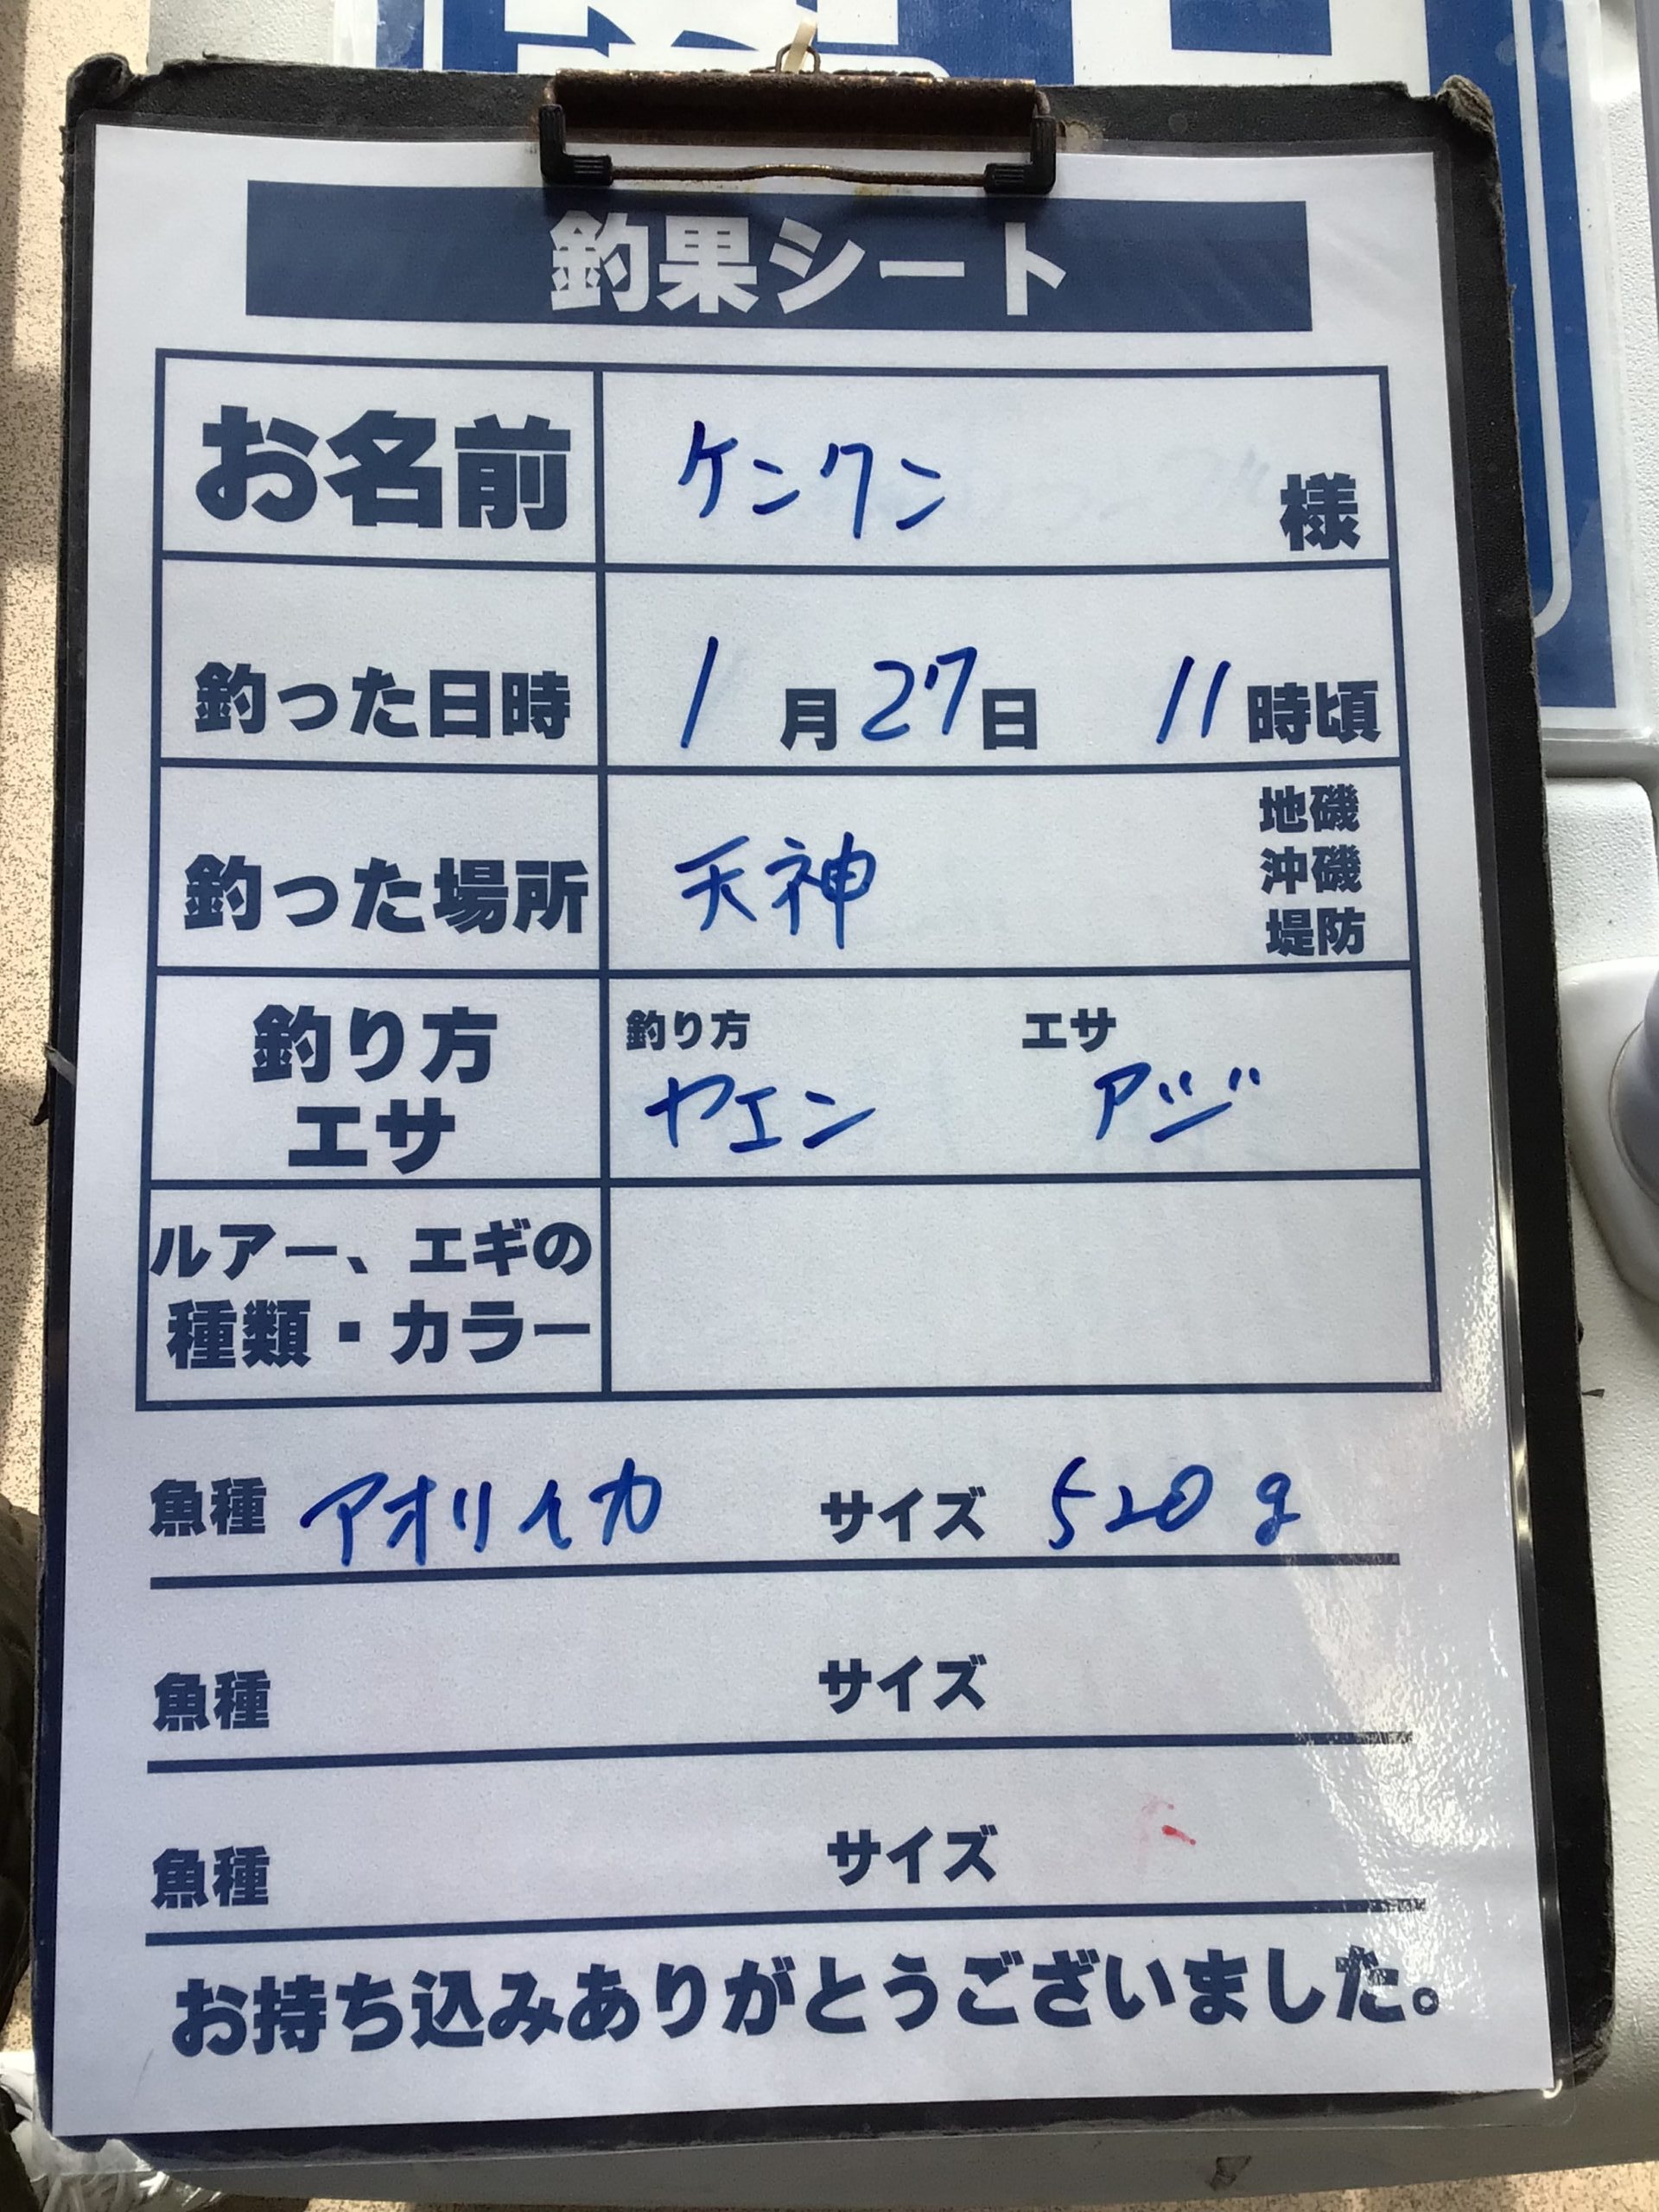 釣果シート
お名前 ケンクン 様
釣った日時 1月27日 11時頃
釣った場所 天神 地磯
沖磯
堤防
釣り方 エサ
釣り方 ヤエン エサ アジ
ルアー、エギの
種類・カラー
魚種 アオリイカ サイズ 520g
魚種 サイズ
魚種 サイズ
お持ち込みありがとうございました。